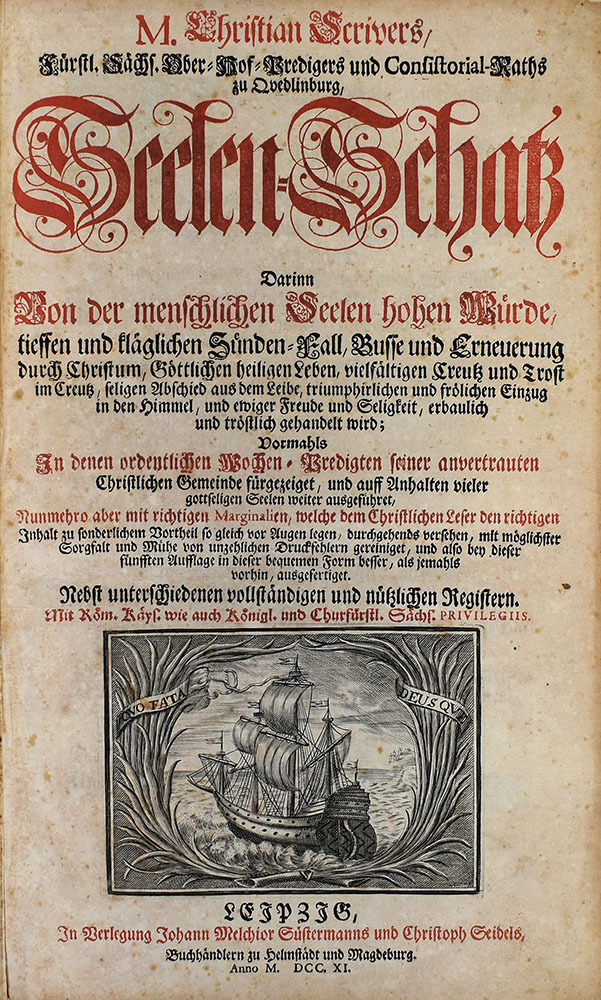 M. Christian Scrivers,
Fürstl. Sächs. Ober-Hof-Predigers und Consistorial-Raths
zu Qvedlinburg,
Seelen-Schatz
Darinn
Von der menschlichen Seelen hohen Würde,
tieffen und kläglichen Sünden-Fall, Busse und Erneuerung
durch Christum, Göttlichen heiligen Leben, vielfältigen Creutz und Trost
im Creutz, seligen Abschied aus dem Leibe, triumphirlichen und frölichen Einzug
in den Himmel, und ewiger Freude und Seligkeit, erbaulich
und tröstlich gehandelt wird;
Vormahls
In denen ordentlichen Wochen-Predigten seiner anvertrauten
Christlichen Gemeinde fürgezeiget, und auff Anhalten vieler
gottseligen Seelen weiter ausgeführet,
Nunmehro aber mit richtigen Marginalien, welche dem Christlichen Leser den richtigen
Inhalt zu sonderlichem Vortheil so gleich vor Augen legen, durchgehends versehen, mit möglichster
Sorgfalt und Mühe von unzehlichen Druckfehlern gereiniget, und also bey dieser
fünfften Aufflage in dieser bequemen Form besser, als jemahls
vorhin, ausgefertiget.
Nebst unterschiedenen vollständigen und nützlichen Registern.
Mit Röm. Käys. wie auch Königl. und Churfürstl. Sächs. PRIVILEGIIS.
QVO FATA DEUSQVE
LEIPZIG,
In Verlegung Johann Melchior Süstermanns und Christoph Seidels,
Buchhändlern zu Helmstädt und Magdeburg.
Anno M. DCC. XI.